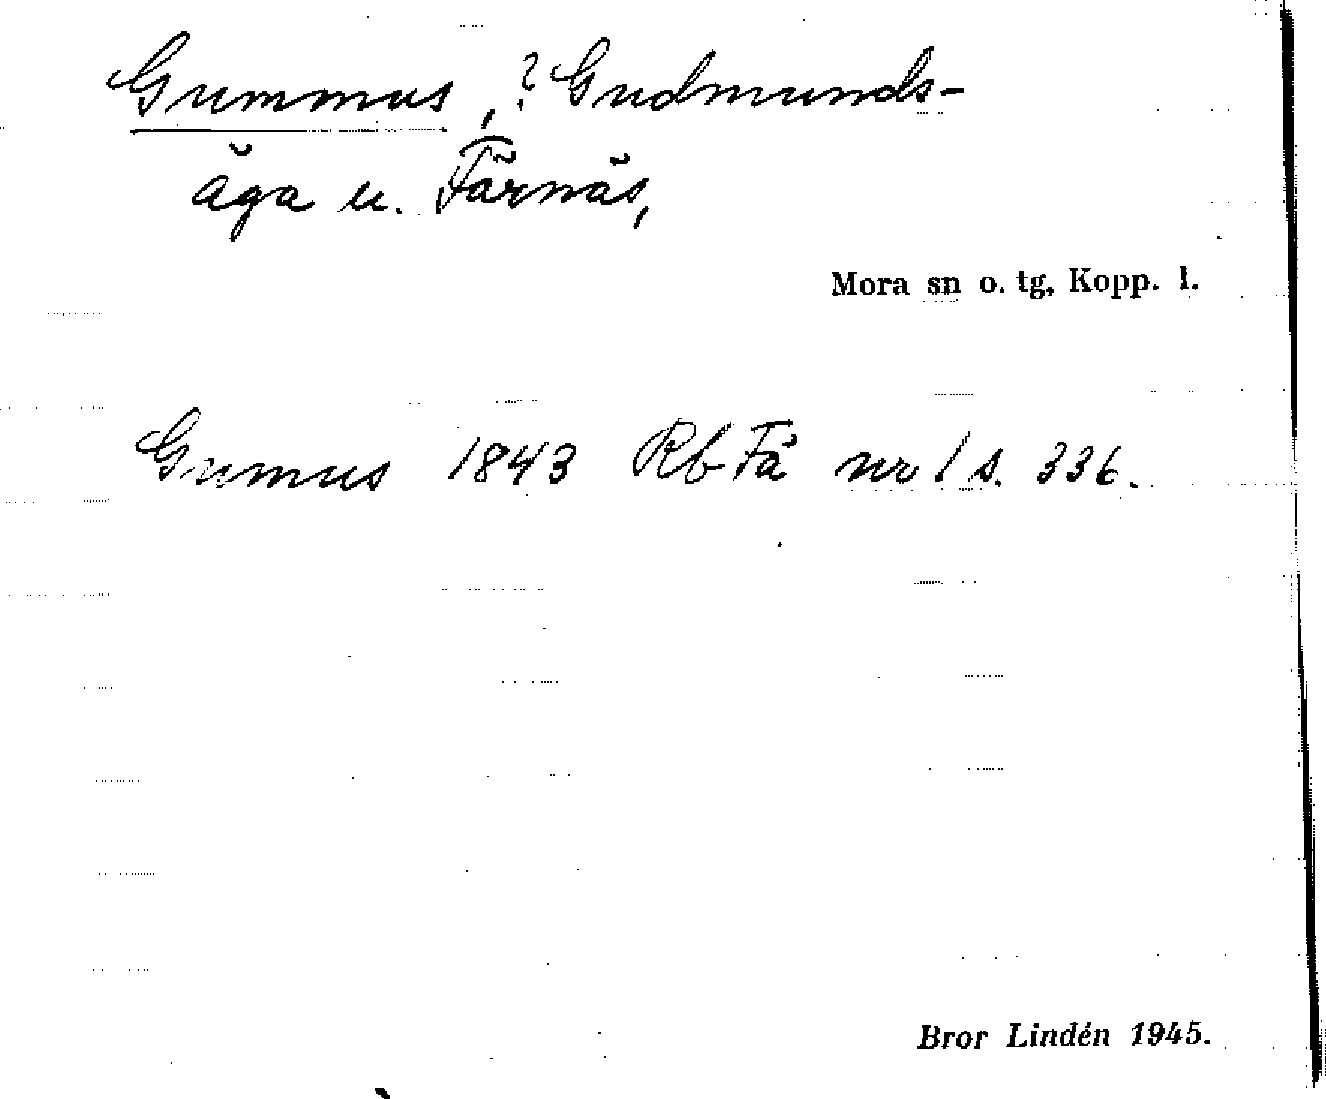 Gummus, ? Gudmunds-
äga u. Färnäs,
Mora sn o. tg, Kopp. l.
Gumus 1843 Rb Fä nr 1 s. 336.
Bror Lindén 1945.